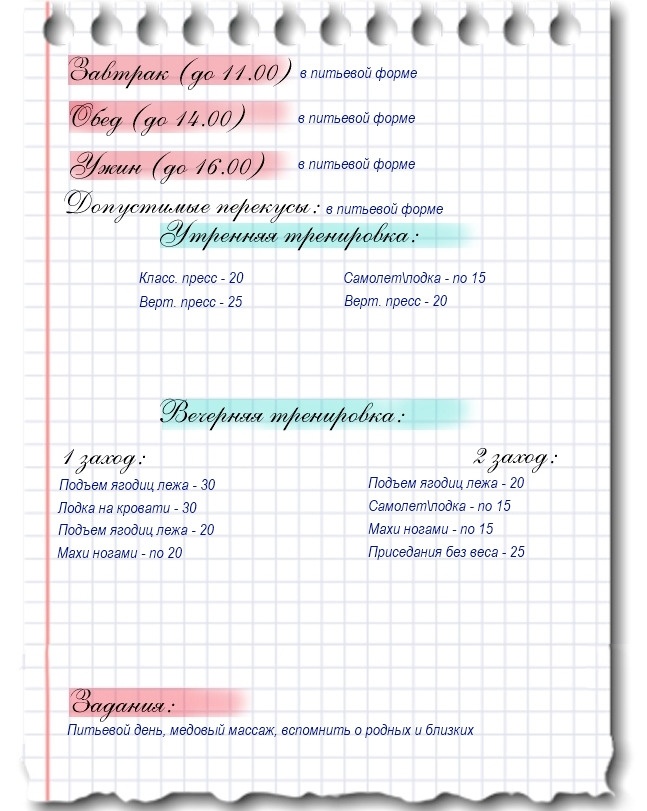 Завтрак (до 11.00) в питьевой форме
Обед (до 14.00) в питьевой форме
Ужин (до 16.00) в питьевой форме
Допустимые перекусы: в питьевой форме
Утренняя тренировка:
Класс. пресс - 20 Самолет\лодка - по 15
Верт. пресс - 25 Верт. пресс - 20
Вечерняя тренировка:
1 заход: 2 заход:
Подъем ягодиц лежа - 30 Подъем ягодиц лежа - 20
Лодка на кровати - 30 Самолет\лодка - по 15
Подъем ягодиц лежа - 20 Махи ногами - по 15
Махи ногами - по 20 Приседания без веса - 25
Задания:
Питьевой день, медовый массаж, вспомнить о родных и близких